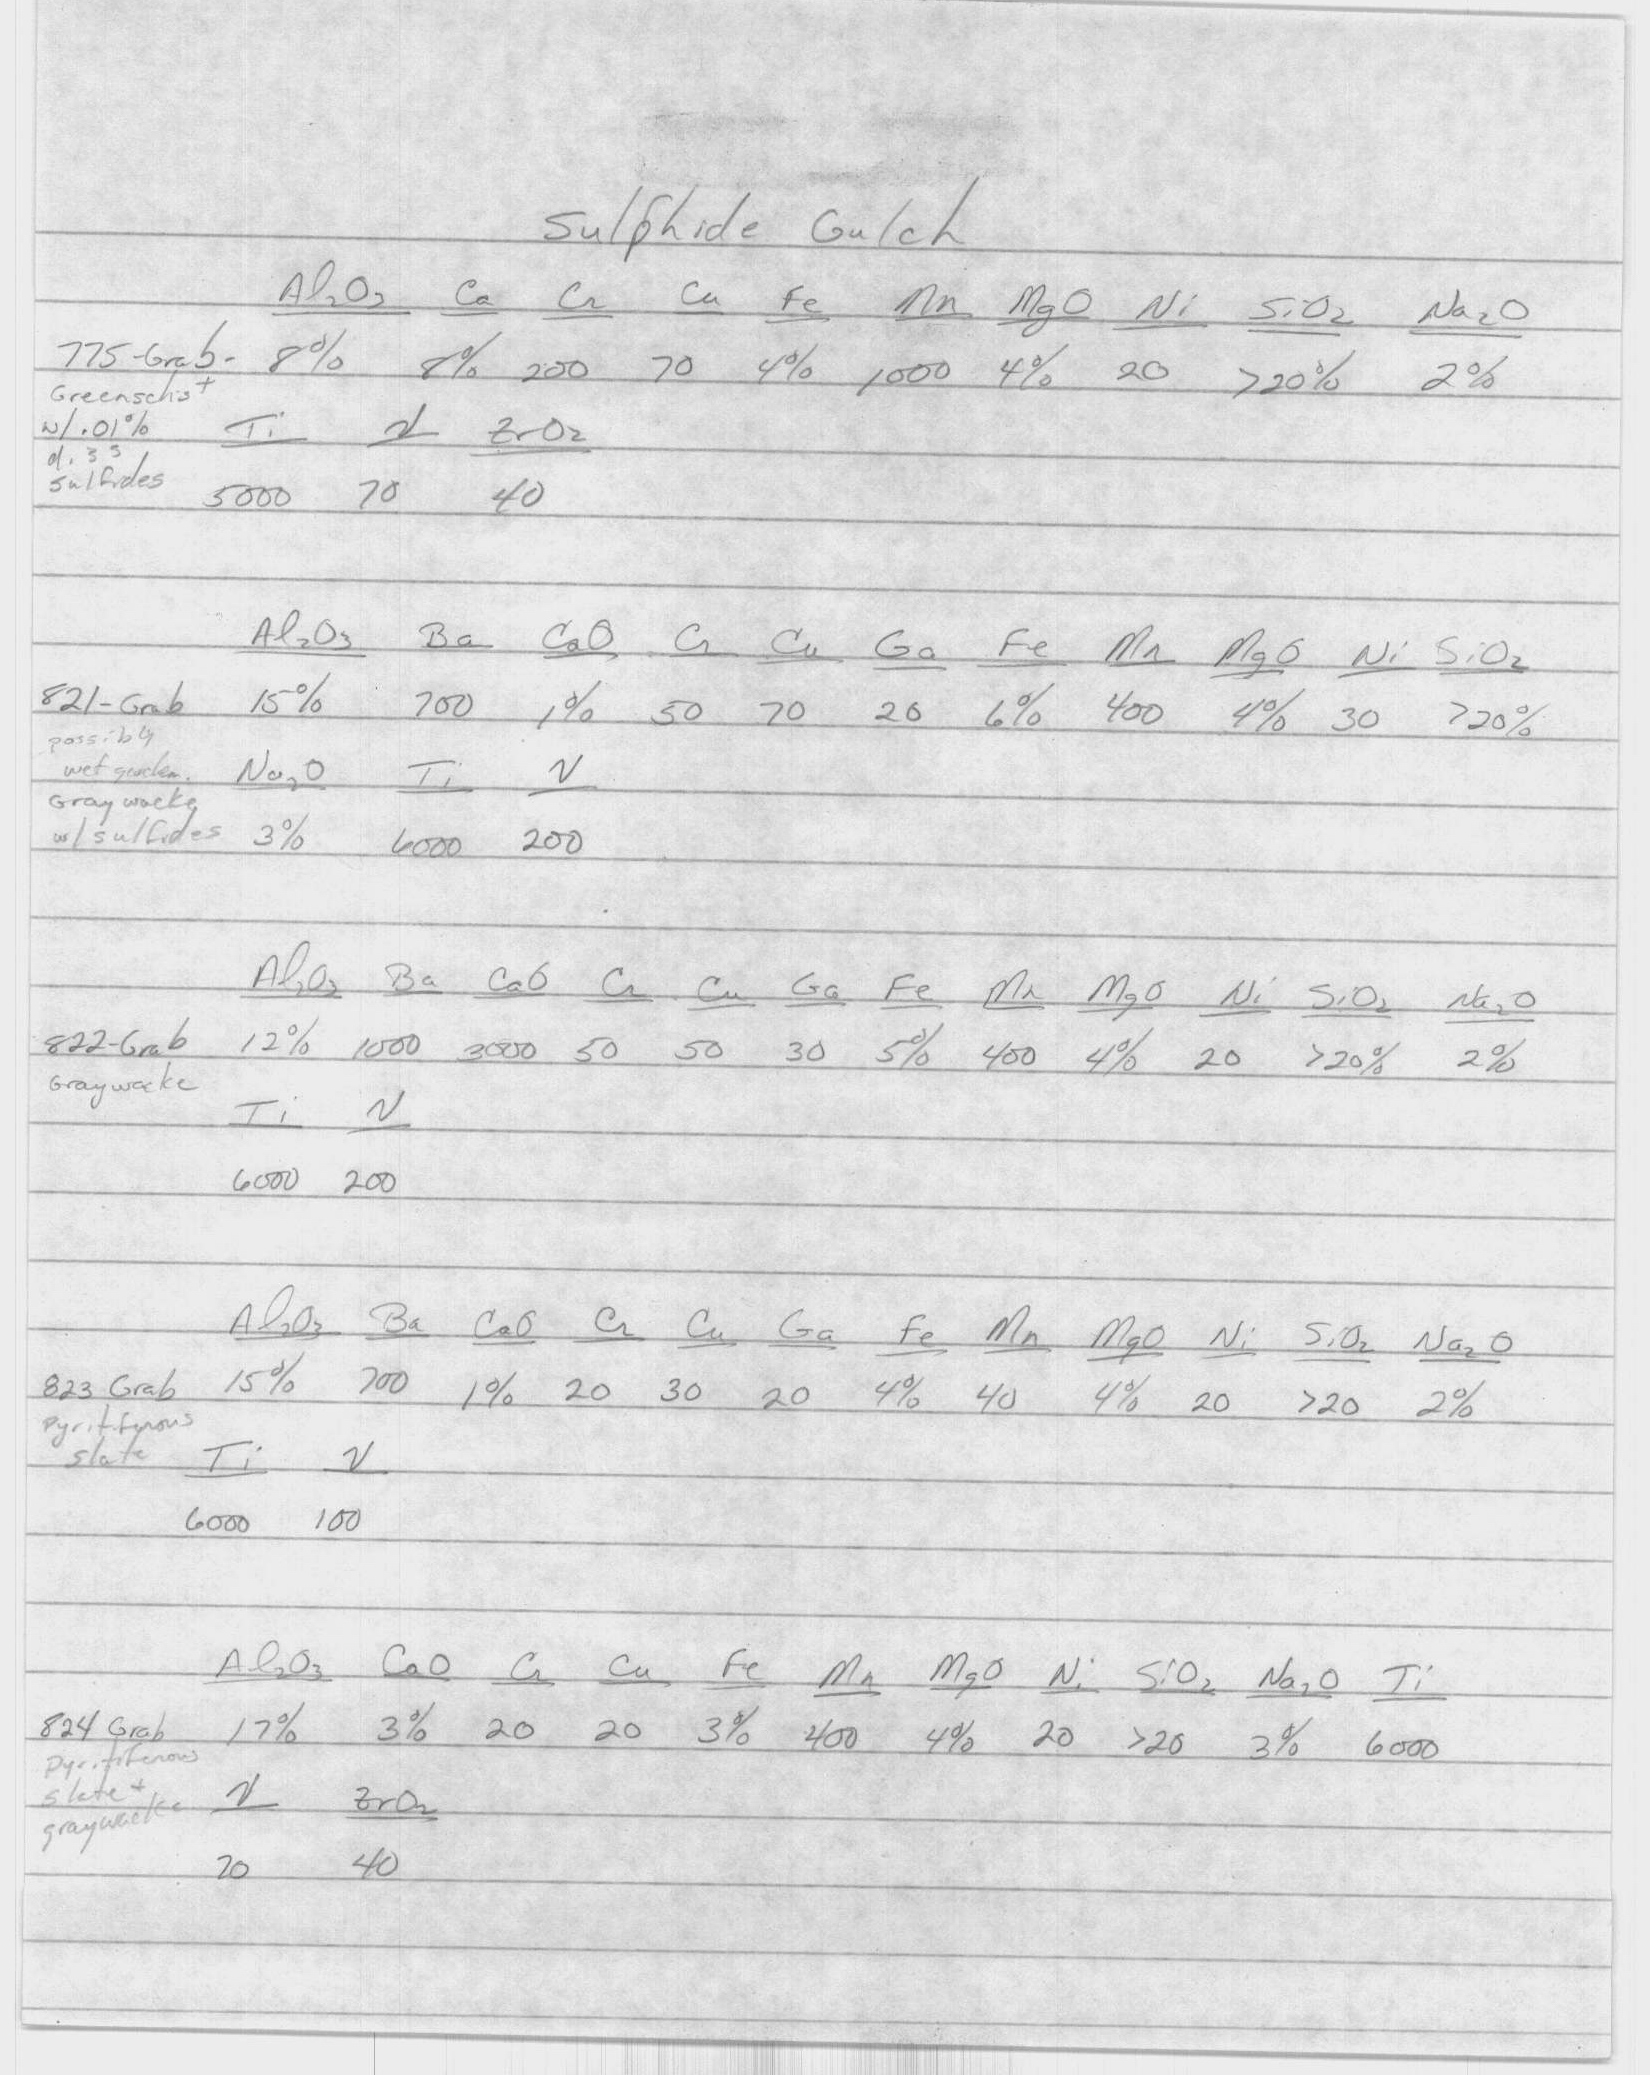 Sulphide Gulch
Al₂O₃ Ca Cr Cu Fe Mn MgO Ni SiO₂ Na₂O
775-Grab- 8% 8% 200 70 4% 1000 4% 20 >20% 2%
Greenschist
w/.01% Ti V ZrO₂
diss
sulfides 5000 70 40
Al₂O₃ Ba CaO Cr Cu Ga Fe Mn MgO Ni SiO₂
821-Grab 15% 700 1% 50 70 20 6% 400 4% 30 >20%
possibly
wet Na₂O Ti V
Graywacke
w/sulfides 3% 6000 200
Al₂O₃ Ba CaO Cr Cu Ga Fe Mn MgO Ni SiO₂ Na₂O
822-Grab 12% 1000 3000 50 50 30 5% 400 4% 20 >20% 2%
Graywacke
Ti V
6000 200
Al₂O₃ Ba CaO Cr Cu Ga Fe Mn MgO Ni SiO₂ Na₂O
823 Grab 15% 700 1% 20 30 20 4% 40 4% 20 >20 2%
Pyritiferous
slate Ti V
6000 100
Al₂O₃ CaO Cr Cu Fe Mn MgO Ni SiO₂ Na₂O Ti
824 Grab 17% 3% 20 20 3% 400 4% 20 >20 3% 6000
Pyritiferous
slate + V ZrO₂
graywacke
70 40